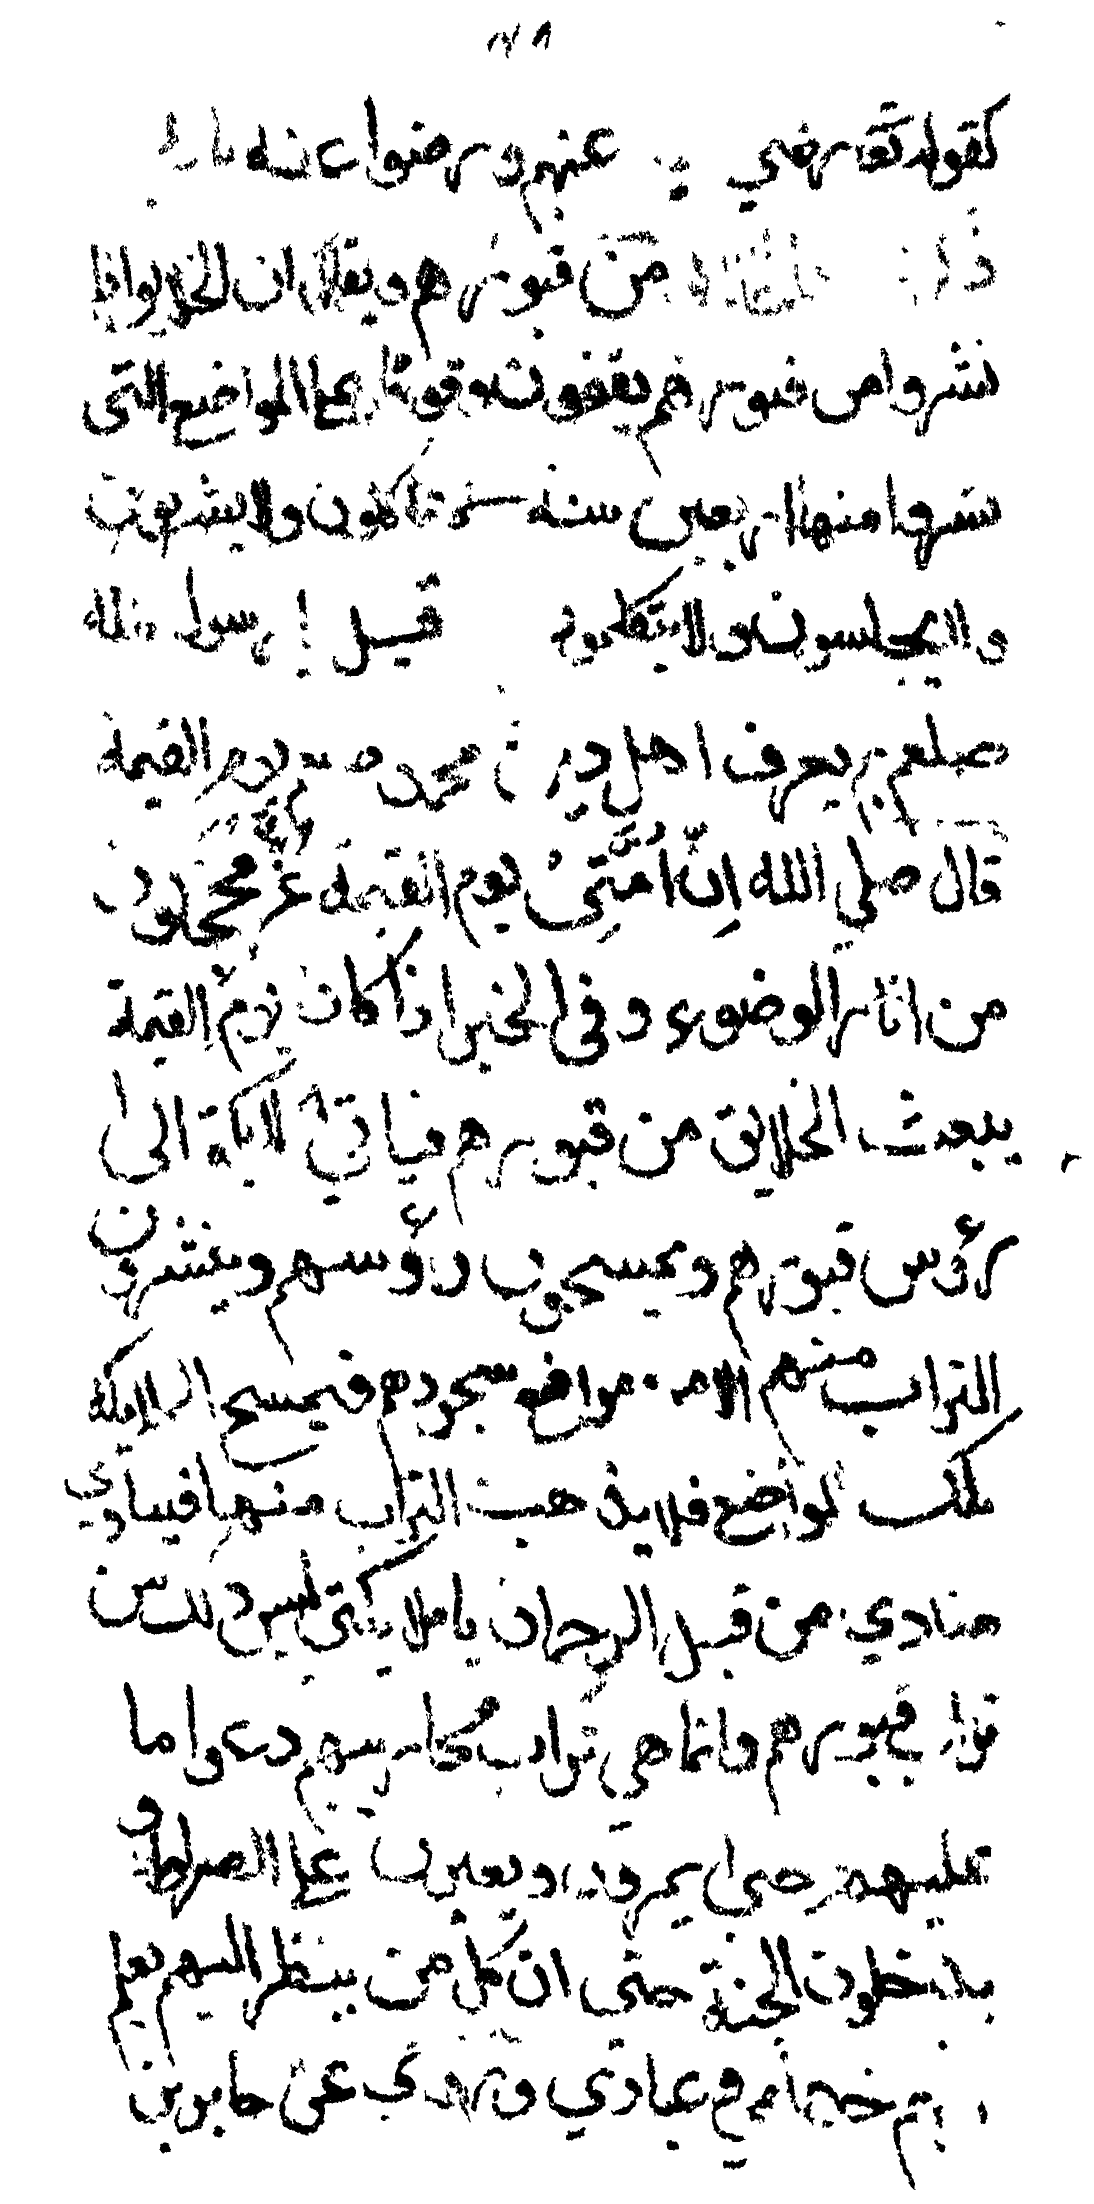 كقوله تع رضي عنهم ورضوا عنه باب
من قبورهم ويقال ان الخلايق اذا
نشروا من قبورهم يقفون وقوفا على المواضع التي
نشروا منها اربعين سنة لا ياكلون ولا يشربون
ولا يجلسون ولا يتكلمون قيل يا رسول الله
صلعم بم يعرف اهل دين محمد صلعم يوم القيمة
قال صلى الله اِنّ اُمَّتِي يوم القيمة غر محجلون
من اثار الوضوء وفي الخبر اذا كان يوم القيمة
يبعث الخلايق من قبورهم فياتي ملايكة الى
رؤس قبورهم ويمسحون رؤسهم وينشرون
التراب منهم الا من مواضع سجودهم فيمسح الملايكة
تلك المواضع فلا يذهب التراب منها فينادي
منادي من قبل الرحمان يا ملايكتي ليس ذلك من
تراب قبورهم وانما هي تراب محاربيهم دعوا ما
عليهم حتى يمرون ويعبرون على الصراط و
يدخلون الجنة حتى ان كل من ينظر اليهم يعلم
انهم خدامي وعبادي وروي عن جابر بن